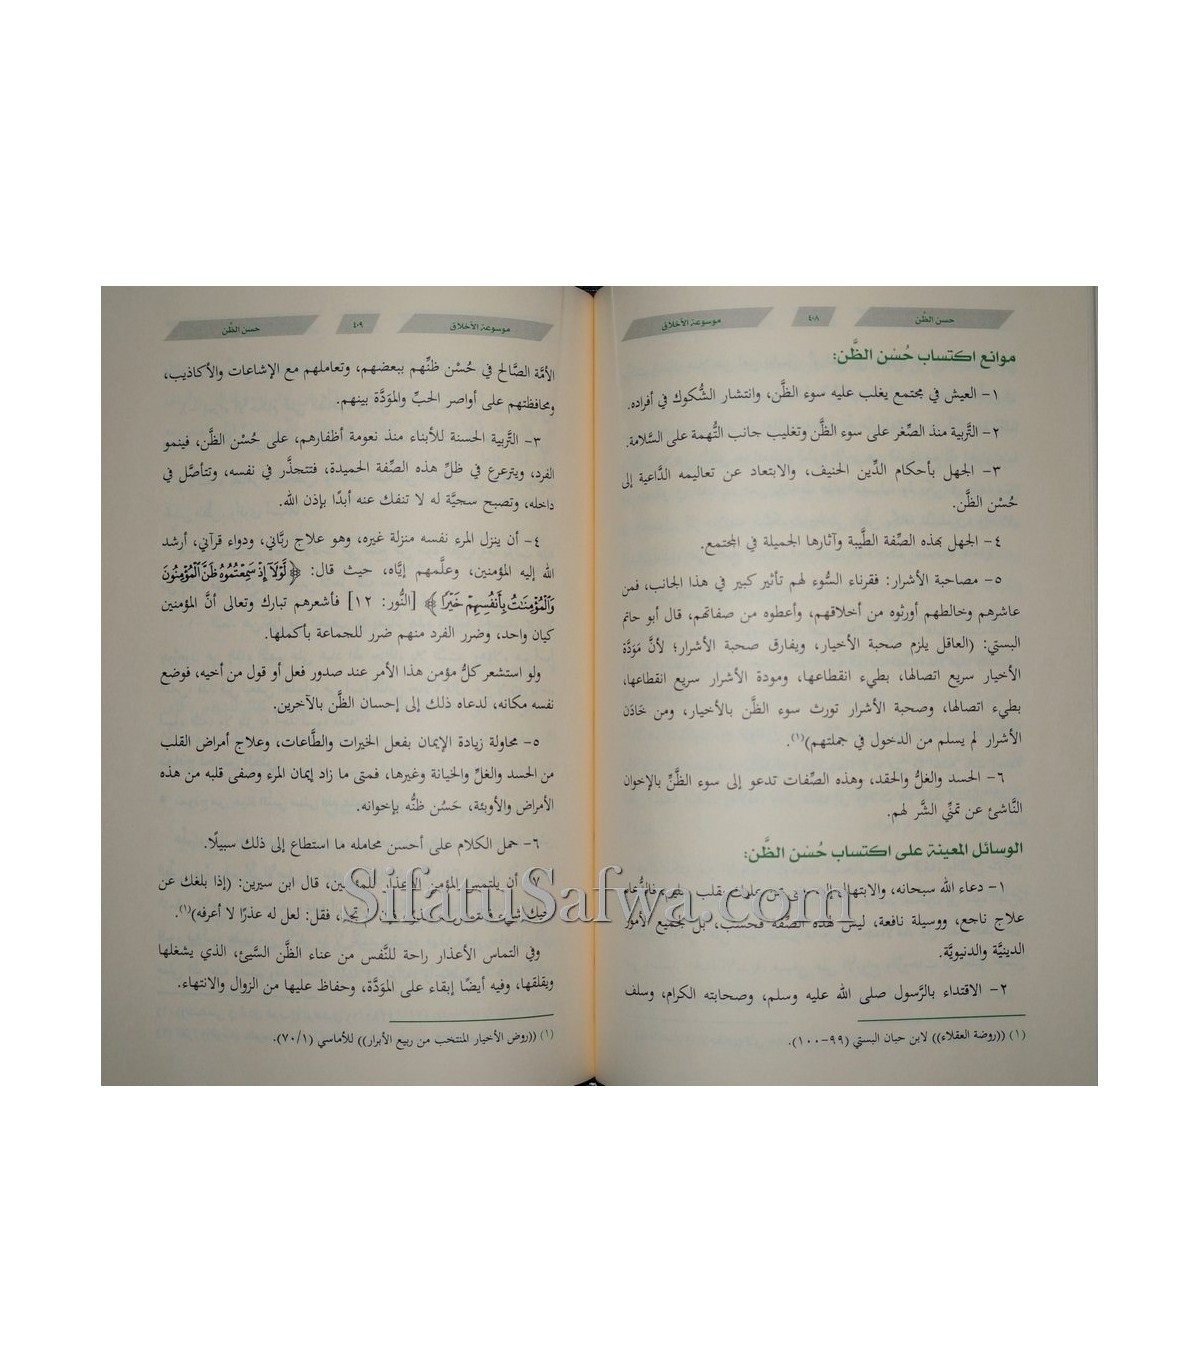 حسن الظَّن
٤٠٨
موسوعة الأخلاق
موانع اكتساب حُسْن الظَّن:
١- العيش في مجتمع يغلب عليه سوء الظَّن، وانتشار الشُّكوك في أفراده.
٢- التَّربية منذ الصِّغر على سوء الظَّن وتغليب جانب التُّهمة على السَّلامة.
٣- الجهل بأحكام الدِّين الحنيف، والابتعاد عن تعاليمه الدَّاعية إلى
حُسْن الظَّن.
٤- الجهل بهذه الصِّفة الطَّيبة وآثارها الجميلة في المجتمع.
٥- مصاحبة الأشرار: فقرناء السُّوء لهم تأثير كبير في هذا الجانب، فمن
عاشرهم وخالطهم أورثوه من أخلاقهم، وأعطوه من صفاتهم، قال أبو حاتم
البستي: (العاقل يلزم صحبة الأخيار، ويفارق صحبة الأشرار؛ لأنَّ مَوَدَّة
الأخيار سريع اتصالها، بطيء انقطاعها، ومودة الأشرار سريع انقطاعها،
بطيء اتصالها، وصحبة الأشرار تورث سوء الظَّن بالأخيار، ومن خَادَن
الأشرار لم يسلم من الدخول في جملتهم)(١).
٦- الحسد والغلُّ والحقد، وهذه الصِّفات تدعو إلى سوء الظَّنِّ بالإخوان
النَّاشئ عن تمنِّي الشَّر لهم.
الوسائل المعينة على اكتساب حُسْن الظَّن:
١- دعاء الله سبحانه، والابتهال بقلب سليم، فالدُّعاء
علاج ناجع، ووسيلة نافعة، ليس لهذه الصِّفة فحسب، بل لجميع الأمور
الدينيَّة والدنيويَّة.
٢- الاقتداء بالرَّسول صلى الله عليه وسلم، وصحابته الكرام، وسلف
(١) ((روضة العقلاء)) لابن حبان البستي (٩٩-١٠٠).
موسوعة الأخلاق
٤٠٩
حسن الظَّن
الأمَّة الصَّالح في حُسْن ظنِّهم ببعضهم، وتعاملهم مع الإشاعات والأكاذيب،
ومحافظتهم على أواصر الحبِّ والموَدَّة بينهم.
٣- التَّربية الحسنة للأبناء منذ نعومة أظفارهم، على حُسْن الظَّن، فينمو
الفرد، ويترعرع في ظلِّ هذه الصِّفة الحميدة، فتتجذَّر في نفسه، وتتأصَّل في
داخله، وتصبح سجيَّة له لا تنفك عنه أبدًا بإذن الله.
٤- أن ينزل المرء نفسه منزلة غيره، وهو علاج ربَّاني، ودواء قرآني، أرشد
الله إليه المؤمنين، وعلَّمهم إيَّاه، حيث قال: ﴿لَّوْلَا إِذْ سَمِعْتُمُوهُ ظَنَّ الْمُؤْمِنُونَ
وَالْمُؤْمِنَاتُ بِأَنفُسِهِمْ خَيْرًا﴾ [النُّور: ١٢] فأشعرهم تبارك وتعالى أنَّ المؤمنين
كيان واحد، وضرر الفرد منهم ضرر للجماعة بأكملها.
ولو استشعر كلُّ مؤمن هذا الأمر عند صدور فعل أو قول من أخيه، فوضع
نفسه مكانه، لدعاه ذلك إلى إحسان الظَّن بالآخرين.
٥- محاولة زيادة الإيمان بفعل الخيرات والطَّاعات، وعلاج أمراض القلب
من الحسد والغلِّ والخيانة وغيرها، فمتى ما زاد إيمان المرء وصفى قلبه من هذه
الأمراض والأوبئة، حَسُن ظنُّه بإخوانه.
٦- حمل الكلام على أحسن محامله ما استطاع إلى ذلك سبيلًا.
٧- أن يلتمس المؤمن الأعذار للمؤمنين، قال ابن سيرين: (إذا بلغك عن
أخيك شيء تجد، فقل: لعل له عذرًا لا أعرفه)(١).
وفي التماس الأعذار راحة للنَّفس من عناء الظَّن السَّيئ، الذي يشغلها
ويقلقها، وفيه أيضًا إبقاء على الموَدَّة، وحفاظ عليها من الزوال والانتهاء.
(١) ((روض الأخيار المنتخب من ربيع الأبرار)) للأماسي (٧٠/١).
SifatuSafwa.com